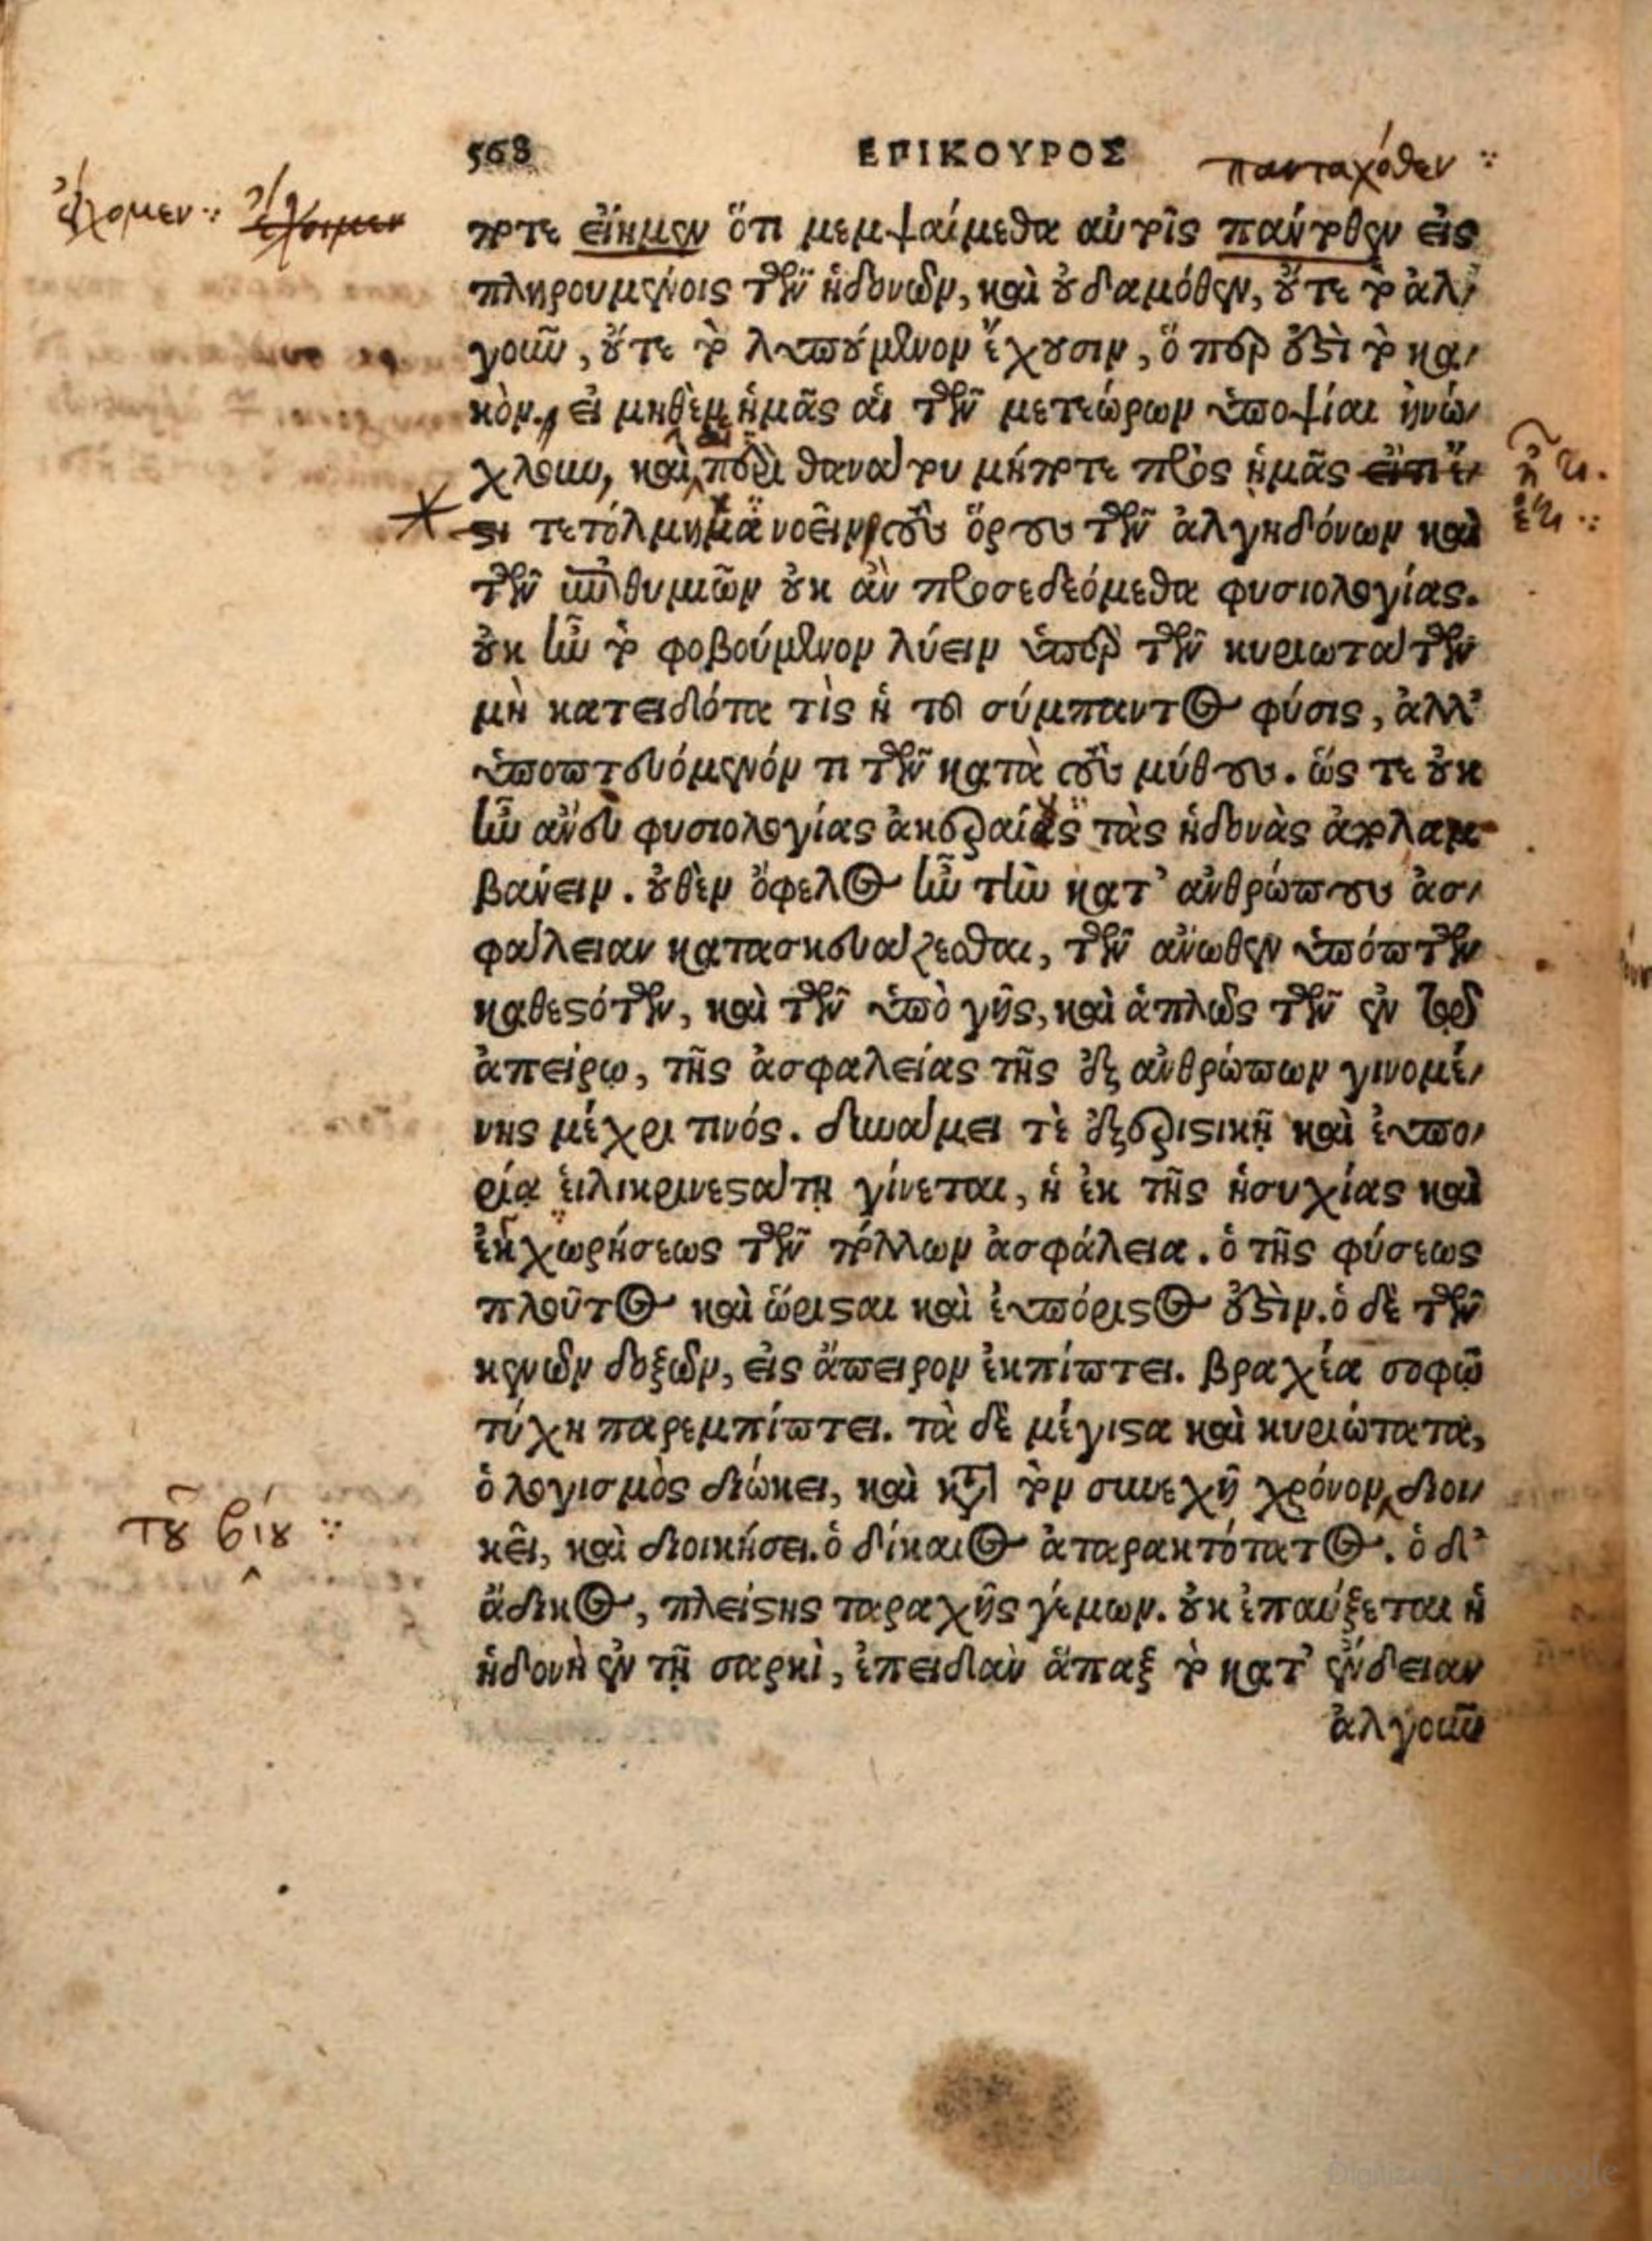 568 ΕΠΙΚΟΥΡΟΣ
πανταχόθεν
ἔχομεν
ποτε εἴημεν ὅτι μεμψαίμεθα αὐτοῖς πάντοθεν εἰς
πληρουμένοις τῶν ἡδονῶν, καὶ οὐδαμόθεν, οὔτε τὸ ἀλ-
γοῦν, οὔτε τὸ λυπούμενον ἔχουσιν, ὅπερ ἐστὶ τὸ κα-
κὸν, εἰ μηθὲν ἡμᾶς αἱ τῶν μετεώρων ὑποψίαι ἠνώ-
χλουν, καὶ περὶ θανάτου μήποτε πρὸς ἡμᾶς εἴπε-
σι τετόλμημα νοεῖν τοὺς ὅρους τῶν ἀλγηδόνων καὶ
ἔτι
τῶν ἐπιθυμιῶν οὐκ ἂν προσεδεόμεθα φυσιολογίας.
οὐκ ἦν τὸ φοβούμενον λύειν ὑπὲρ τῶν κυριωτάτων
μὴ κατειδότα τὶς ἡ τοῦ σύμπαντος φύσις, ἀλλ’
ὑποπτευόμενόν τι τῶν κατὰ τοὺς μύθους. ὥς τε οὐκ
ἦν ἄνευ φυσιολογίας ἀκεραίας τὰς ἡδονὰς ἀπολαμ-
βάνειν. οὐθὲν ὄφελος ἦν τὴν κατ’ ἀνθρώπους ἀσ-
φάλειαν κατασκευάζεσθαι, τῶν ἄνωθεν ὑπόπτων
καθεστότων, καὶ τῶν ὑπὸ γῆς, καὶ ἁπλῶς τῶν ἐν τῷ
ἀπείρῳ, τῆς ἀσφαλείας τῆς ἐξ ἀνθρώπων γινομέ-
νης μέχρι τινός. δυνάμει τὲ ἐξεριστικῇ καὶ εὐπο-
ρίᾳ εἰλικρινεστάτῃ γίνεται, ἡ ἐκ τῆς ἡσυχίας καὶ
ἐκχωρήσεως τῶν πολλῶν ἀσφάλεια. ὁ τῆς φύσεως
πλοῦτος καὶ ὥρισται καὶ εὐπόριστος ἐστὶν. ὁ δὲ τῶν
κενῶν δοξῶν, εἰς ἄπειρον ἐκπίπτει. βραχέα σοφῷ
τύχη παρεμπίπτει. τὰ δὲ μέγιστα καὶ κυριώτατα,
ὁ λογισμὸς διώκει, καὶ κατὰ τὸν συνεχῆ χρόνον διοι-
τοῦ βίου
κεῖ, καὶ διοικήσει. ὁ δίκαιος ἀταρακτότατος. ὁ δ’
ἄδικος, πλείστης ταραχῆς γέμων. οὐκ ἐπαύξεται ἡ
ἡδονὴ ἐν τῇ σαρκὶ, ἐπειδὰν ἅπαξ τὸ κατ’ ἔνδειαν
ἀλγοῦν